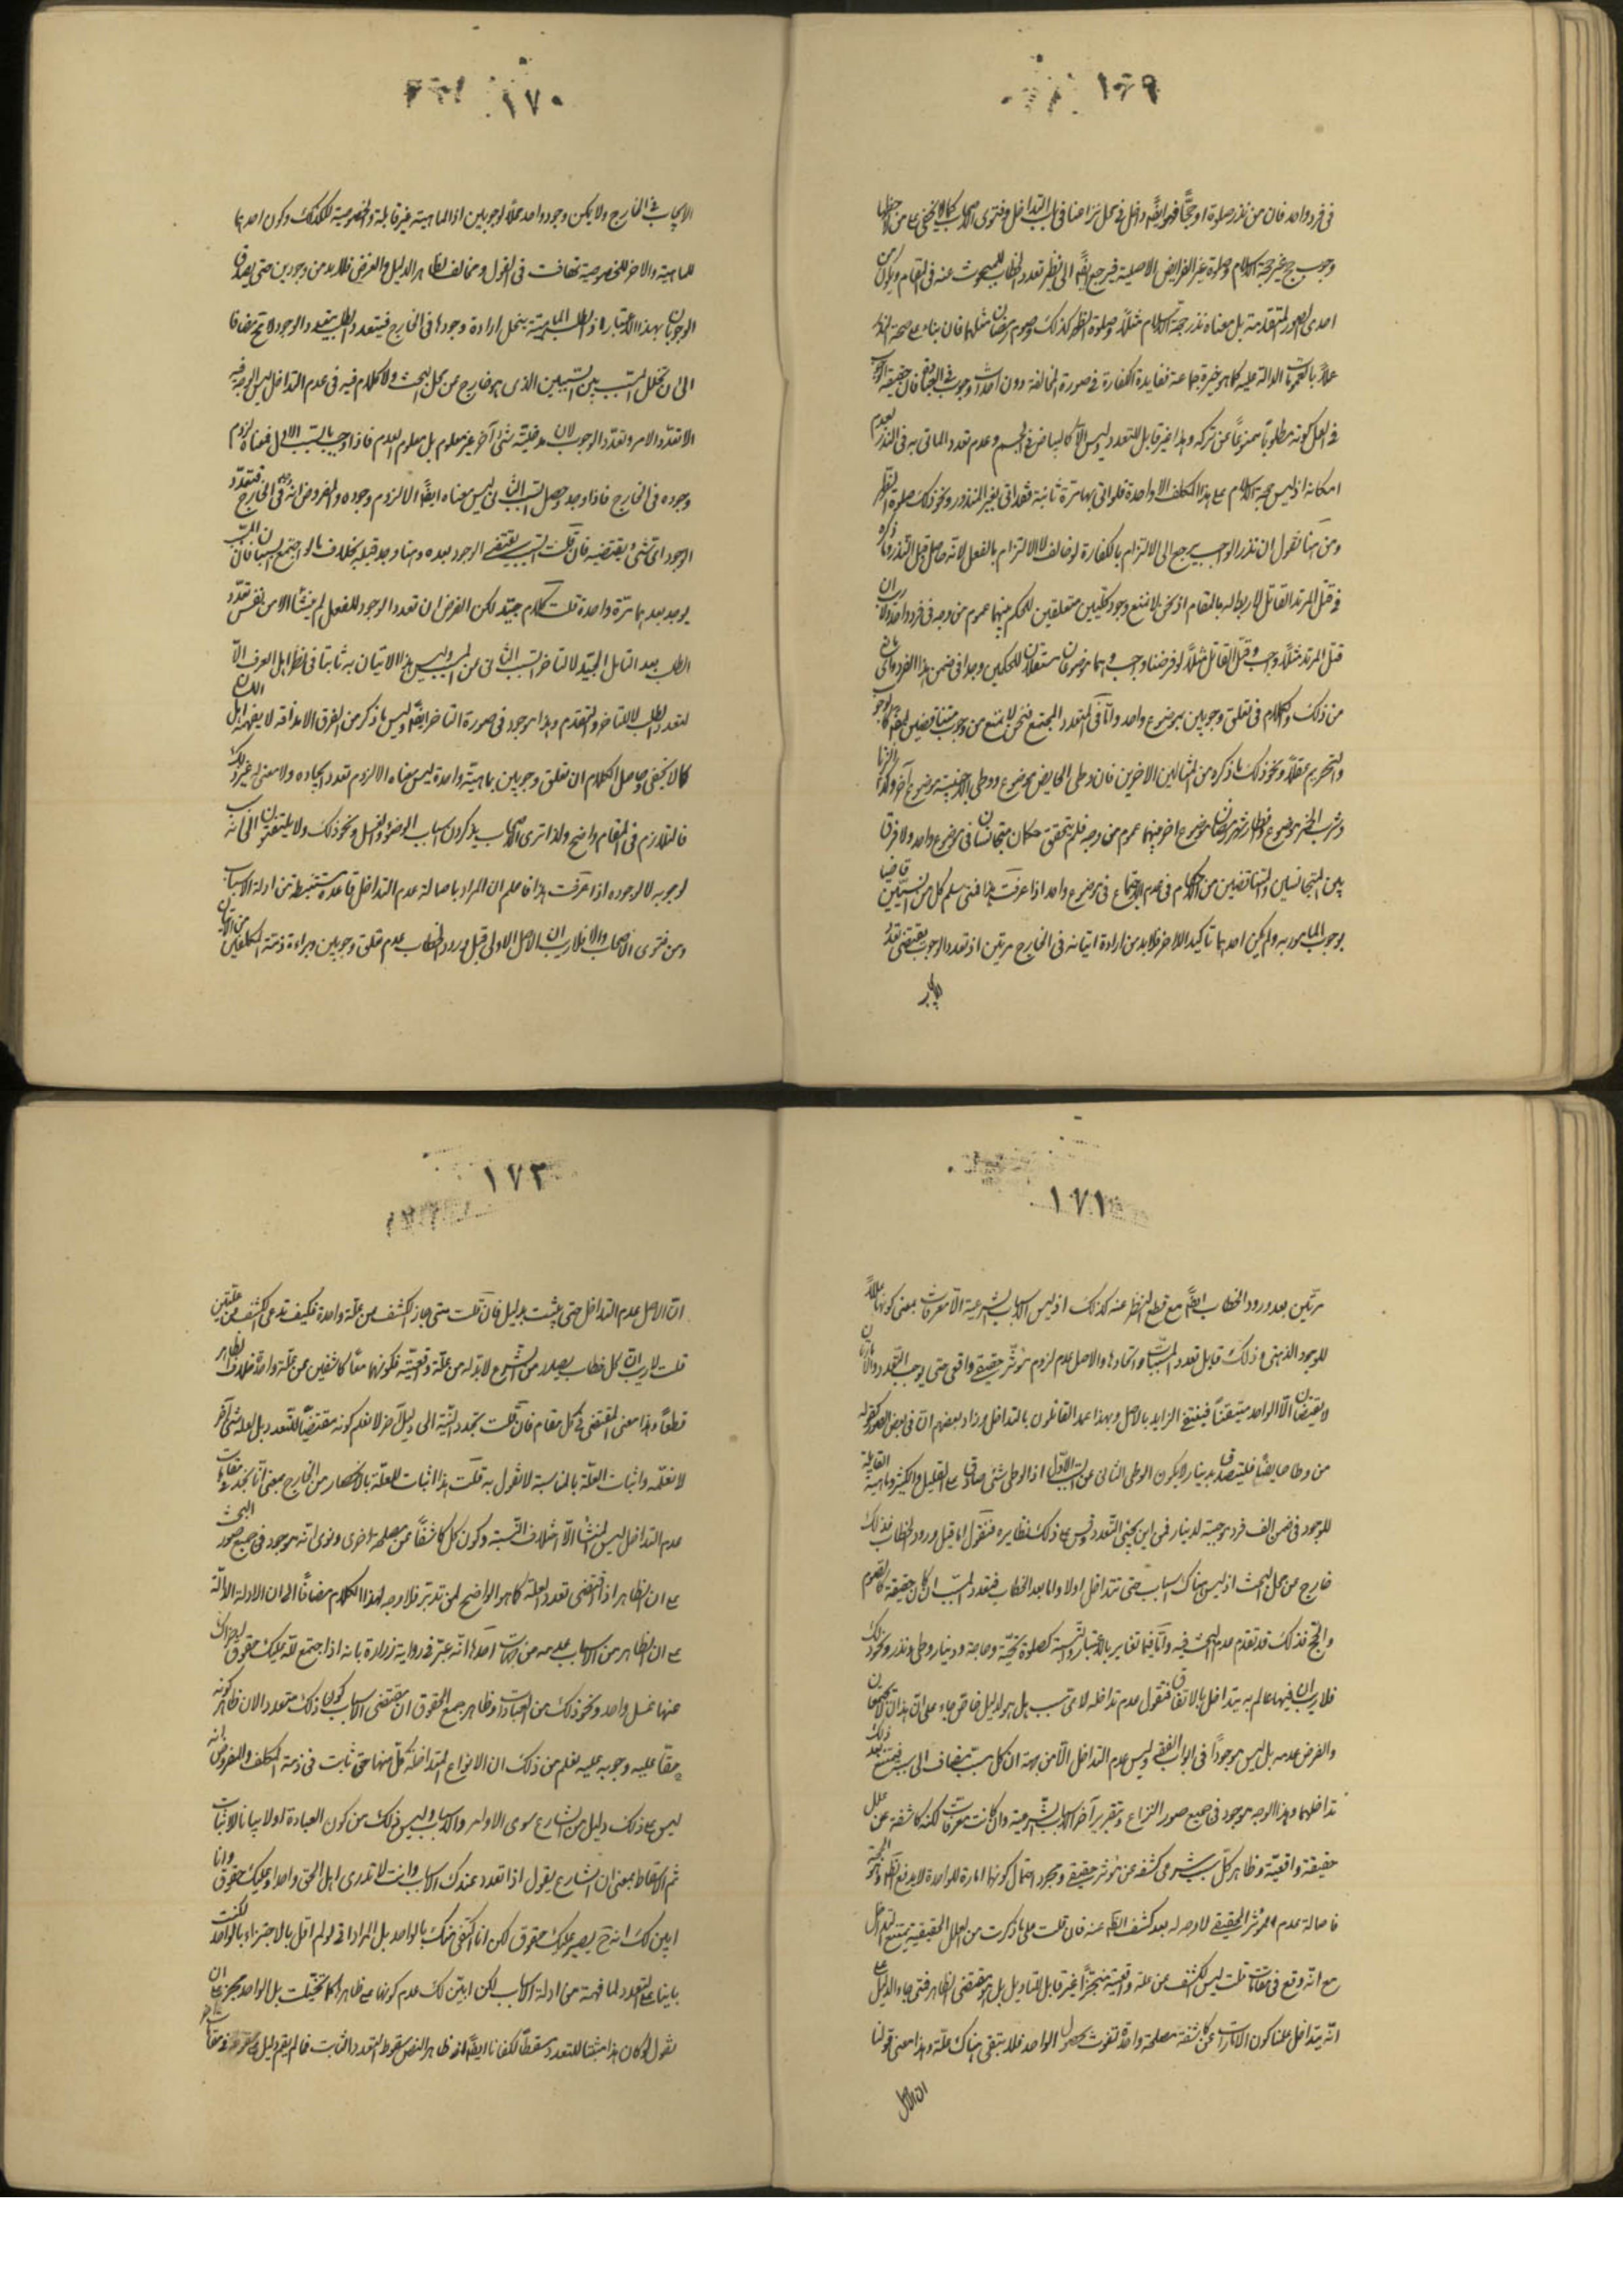 ١٦٩
فى فرد واحد فان من نذر صلوة او حجّا فهو ايضًا داخل فى محل نزاعنا فى باب التداخل وفتوى الاصحاب كما لا يخفى على من لاحظها
وجوب حج غير حجة الاسلام وصلوة غير الفرايض الاصلية فيرجع ايضًا الى نظير تعدد الخطاب المبحوث عنه فى المقام ويكون من
احدى الصور المتقدمة بل معناه نذر حجة الاسلام مثلًا وصلوة الظهر كذلك وصوم رمضان مثلهما فان بناء على صحة النذر
عملًا بالعمومات الدالة عليه كما هو خيرة جماعة فايدة الكفارة فى صورة المخالفة دون احداث وجوب فى المبحوث فان حقيقة الوجوب
فى الفعل كونه مطلوبًا ممنوعًا عن تركه وهذا غير قابل للتعدد وليس الا كالبياض فى الجسم وعدم تعدد الماتى به فى النذر لعدم
امكانه اذ ليس حجة الاسلام على هذا المكلف الا واحدة فلو اتى بها مرة ثانية فقد اتى بغير المنذور ونحو ذلك صلوة الظهر
ومن هنا نقول ان نذر الواجب يرجع الى الالتزام بالكفارة لو خالف لا الالتزام بالفعل لانه حاصل قبل النذر وما ذكره
فى قتل المرتد القاتل لا ربط له بالمقام اذ نحن لا نمنع وجود كليين متعلقين للحكم بينهما عموم من وجه فى فرد واحد ولا ريب ان
قتل المرتد مثلًا واجب وقتل القاتل مثلًا لو فرضنا واجب وهما موضوعان مستقلان للحكمين وجدا فى ضمن هذا الفرد واى مانع
من ذلك والكلام فى تعلق وجوبين بموضوع واحد وامّا فى المتعدد المجتمع فنحن لا نمنع من وجوب متناقضين ايضًا كالوجوب
والتحريم عقلًا ونحو ذلك ما ذكره من المثالين الاخرين فان وطى الحايض موضوع ووطى الاجنبية موضوع آخر وكذا الزنا
وشرب الخمر موضوع وافطار شهر رمضان موضوع اخر بينهما عموم من وجه فلم يتحقق حكمان متجانسان فى موضوع واحد ولا فرق
بين المتجانسين والمتناقضين من الاحكام فى عدم الاجتماع فى موضوع واحد اذا عرفت هذا فنقول متى سلم كل من السببين قاضيا
بوجوب المامور به ولم يكن احدهما تاكيدا للاخر فلا بد من ارادة اتيانه فى الخارج مرتين اذ تعدد الوجوب يقتضى تعدد
الايجاب
١٧٠
الايجاب فى الخارج ولا يمكن وجود واحد محلًا لوجوبين اذ الماهية غير قابلة والخصوصية كذلك وكون احدهما
للماهية والاخر للخصوصية تهافت فى القول ومخالف لظاهر الدليل والفرض فلا بد من وجودين حتى يصدق
الوجوبان بهذا الاعتبار اذ الطلب للماهية ينحل ارادة وجودها فى الخارج فيتعدد الطلب بتعدد الوجود لا مح مضافا
الى ان تخلل المسبب بين السببين الذى هو خارج عن محل البحث ولا كلام فيه فى عدم التداخل ليس الوجه فيه
الا تعدد الامر وتعدد الوجوب لان مدخلية شئ آخر غير معلوم بل معلوم العدم فاذا وجب بالسبب الاول فمعناه لزوم
وجوده فى الخارج فاذا وجد وحصل السبب الثانى ليس معناه ايضًا الا لزوم وجوده والمفروض انه وجد فى الخارج فتعدد
الوجود اى شئ يقتضيه فان قلت السبب يقتضى الوجود بعده وهنا وجد قبله بخلاف ما لو اجتمع السببان فان المسبب
يوجد بعدهما مرّة واحدة قلت كلام جيّد لكن الفرض ان تعدد الوجود للفعل لم ينشأ الا من نفس تعدد
الطلب بعد التامل الجيّد لا لتاخر السبب الثانى عن المسبب وليس هذا الاتيان به ثابتا فى نظر اهل العرف الّا
لتعدد الطلب لا للتاخر والتقدم وهذا موجود فى صورة التاخر ايضًا وليس ما ذكر من الفرق الا مداقة لا يفهمه اهل اللسان
كما لا يخفى وحاصل الكلام ان تعلق وجوبين بماهية واحدة ليس معناه الا لزوم تعدد ايجاده ولا معنى له غير ذلك
فالتلازم فى المقام واضح ولذا ترى الاصحاب يذكرون اسباب الوضوء والغسل ونحو ذلك ولا يلتفتون الى انه سبب
لوجوبه لا لوجوده اذا عرفت هذا فاعلم ان المراد باصالة عدم التداخل قاعدة مستنبطة من ادلة الاسباب
ومن فتوى الاصحاب والا فلا ريب ان الاصل الاولى قبل ورود الخطاب عدم تعلق وجوبين وبراءة ذمة المكلفين من الاتيان
١٧١
مرّتين بعد ورود الخطاب ايضًا مع قطع النظر عنه كذلك اذ ليس الاسباب الشرعية الّا معرفات بمعنى كونها عللًا
للوجود الذهنى وذلك قابل تعدد المسببات واتحادها والاصل عدم لزوم مؤثر حقيقى واقعى حتى يوجب التعدد والامارتان
لا يقتضيان الّا الواحد متيقنًا فينتفى الزايد بالاصل وبهذا عمد القائلون بالتداخل وزاد بعضهم ان فى بعض الصور كقوله
من وطا حايضًا فليتصدق بدينار لا يكون الوطى الثانى عن السبب الاول اذ الوطى شئ صادق على القليل والكثير وماهية القابلة
للوجود فى ضمن الف فرد موجبة لدينار فمن اين يجئ التعدد وقس على ذلك نظايره فنقول اما قبل ورود الخطاب فذلك
خارج عن محل البحث اذ ليس هناك اسباب حتى تتداخل اولا واما بعد الخطاب فيتعدد المسبب ان كان حقيقة كالصوم
والحج فذلك قد تقدم عدم البحث فيه وامّا فيما تغاير بالاعتبار والنسبة كصلوة تحيّة وحاجة ودينار وطى ونذر ونحو ذلك
فلا ريب ان فيهما عالم به يتداخل بالاتفاق فنقول عدم تداخله لاى سبب هل هو لدليل خاص جاء على ان هذان لا يجتمعان
والفرض عدمه بل ليس موجودًا فى ابواب الفقه وليس عدم التداخل الّا من جهة ان كل مسبب يضاف الى سببه فيمتنع بعد ذلك
تداخلهما وهذا الوجه موجود فى جميع صور النزاع وبتقرير آخر الاسباب الشرعية وان كانت معرفات لكنها كاشفة عن علل
حقيقة واقعيّة وظاهر كلّ سبب شرعى كشفه عن مؤثر حقيقى ومجرد احتمال كونها امارة للواحدة لا يدفع الظهور والحجة
فاصالة عدم المؤثر الحقيقى لا وجه له بعد كشف الظاهر عنه فان قلت على ما ذكرت من العلل الحقيقية يمتنع التداخل
مع انّه وقع فى مقامات قلت ليس الكشف عن علة واقعية منجزًا غير قابل للتاويل بل هو مقتضى الظاهر فمتى جاء الدليل على
انّه يتداخل علمنا كون الامارات كاشفة عن مصلحة واحدة تفوت بحصول الواحد فلا تبقى هناك علّة وهذا معنى قولنا
ان الاصل
١٧٢
انّ الاصل عدم التداخل حتى يثبت بدليل فان قلت متى جاز الكشف عن علّة واحدة فكيف تدعى الكشف عن علّتين
قلت لا ريب ان كل خطاب يصدر من الشرع لا بد له من علّة واقعيّة فكونهما معًا كاشفين عن علّة واحدة خلاف الظاهر
قطعًا وهذا معنى المقتضى فى كل مقام فان قلت تجدد النيّة الى دليل آخر لا نعلم كونه مقتضيًا للتعدد بل لعله شئ آخر
لا نعلمه واثبات العلّة بالمناسبة لا نقول به قلت هذا اثبات للعلّة بالانحصار من الخارج بمعنى انّا نجد فى مقامات
عدم التداخل ليس المنشأ الّا اختلاف النسبة وكون كل كاشفًا عن مصلحة اخرى ونرى انه موجود فى جميع صور البحث
على ان الظاهر اذا اقتضى تعدد العلة كما هو الواضح لمن تدبّر فلا وجه لهذا الكلام مضافًا الى ان الادلة الدالّة
على ان الظاهر من الاسباب عدمه من جهات احدها انّه عبّر فى رواية زرارة بانه اذا اجتمع للّه عليك حقوق اجزاك
عنها غسل واحد ونحو ذلك من العبادات وظاهر جمع الحقوق ان مقتضى الاسباب كون ذلك متعددا لان ظاهر كونه
حقًا عليه وجوبه عليه يعلم من ذلك ان الانواع المتداخلة كلّ منها حق ثابت فى ذمة المكلف والمفروض انه
ليس على ذلك دليل من الشارع سوى الاوامر والاسباب وليس ذلك من كون العبادة اولا بيانا لاثبات
ثم الاسقاط بمعنى ان الشارع يقول اذا تعدد عندك الاسباب وانت لا تدرى اهل الحق واحد او عليك حقوق وانا
ابين لك انه ح يصير عليك حقوق لكن انا اكتفى منك بالواحد بل المراد انى لو لم اقل بالاجتزاء بالواحد لكنت
بانيًا على التعدد لما فهمته من ادلة الاسباب لكن ابيّن لك عدم كونها على ظاهرها كما تخيّلت بل الواحد مجز على ان
نقول لو كان هذا مثبتا للتعدد ومسقطًا لكفانا ايضًا اذ ظاهر النص سقوط التعدد الثابت فما لم يقم دليل على سقوطه فى مقامات